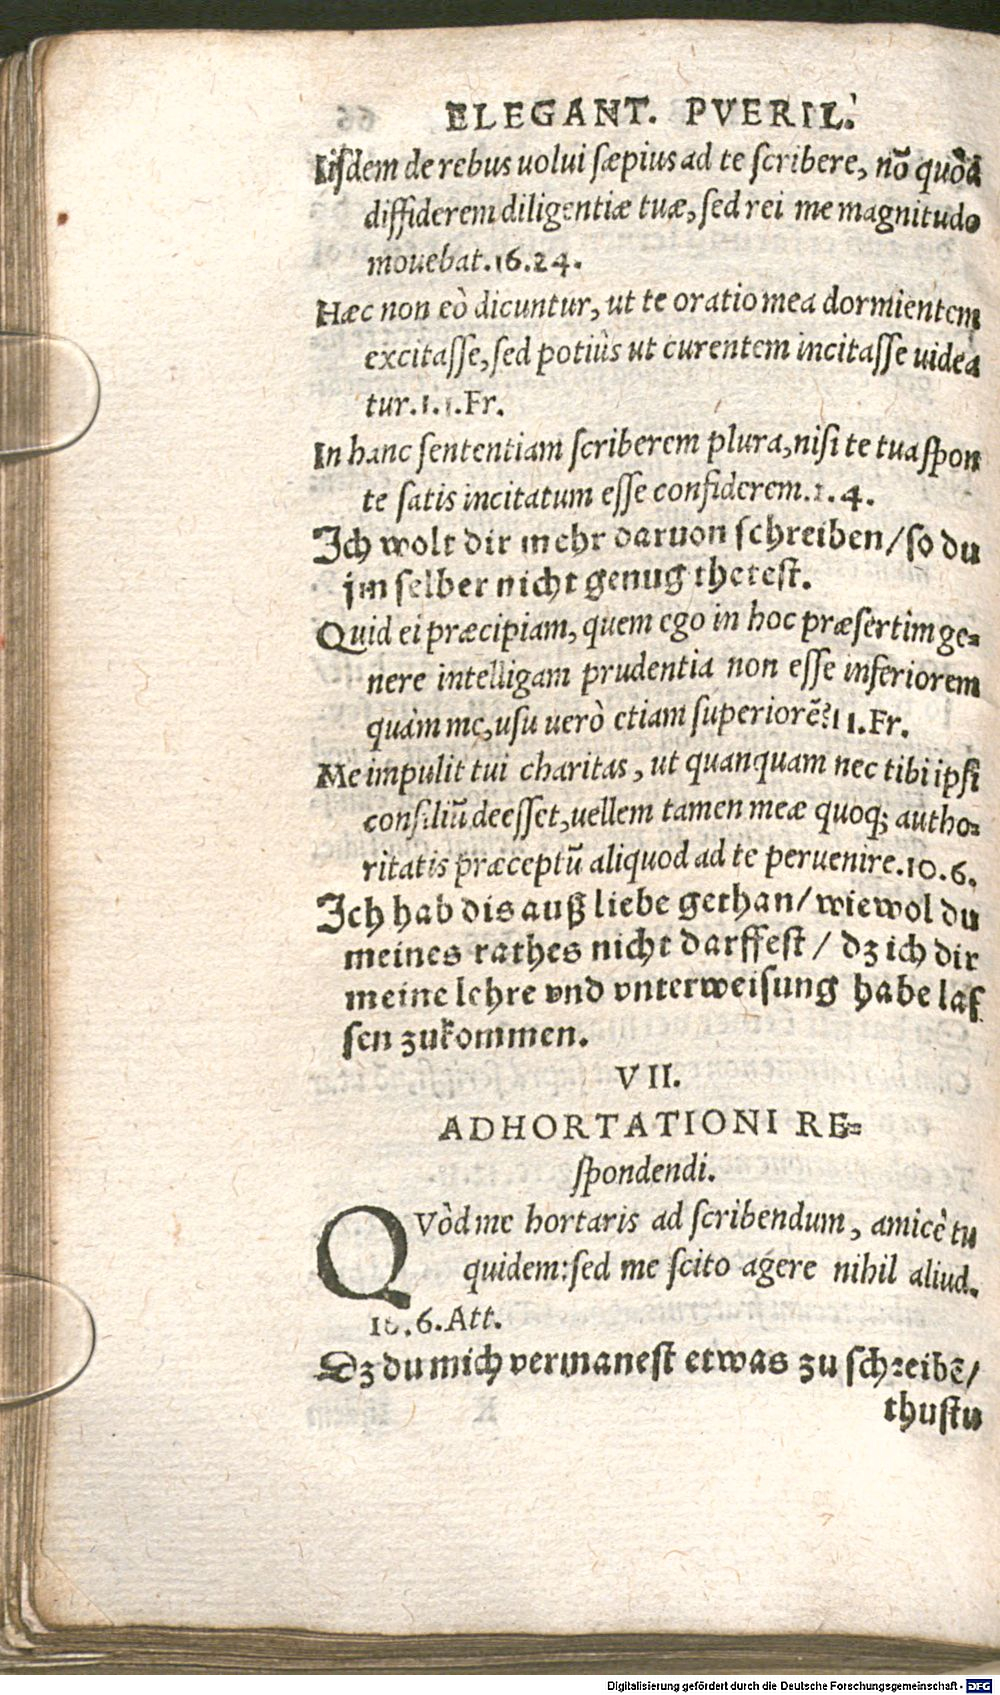 ELEGANT. PVERIL.
Iisdem de rebus uolui sæpius ad te scribere, nõ quòd
diffiderem diligentiæ tuæ, sed rei me magnitudo
mouebat.16.24.
Hæc non eò dicuntur, ut te oratio mea dormientem
excitasse, sed potiùs ut currentem incitasse uidea
tur.1.1.Fr.
In hanc sententiam scriberem plura, nisi te tua spon
te satis incitatum esse confiderem.1.4.
Ich wolt dir mehr daruon schreiben/so du
jm selber nicht genug thetest.
Quid ei præcipiam, quem ego in hoc præsertim ge=
nere intelligam prudentia non esse inferiorem
quàm me, usu uerò etiam superiorẽ?11.Fr.
Me impulit tui charitas, ut quanquam nec tibi ipsi
consiliũ deesset, uellem tamen meæ quoq; autho=
ritatis præceptũ aliquod ad te peruenire.10.6.
Ich hab dis auß liebe gethan/wiewol du
meines rathes nicht darffest/dz ich dir
meine lehre vnd vnterweisung habe las
sen zukommen.
VII.
ADHORTATIONI RE=
spondendi.
QVòd me hortaris ad scribendum, amicè tu
quidem: sed me scito agere nihil aliud.
16.6.Att.
Dz du mich vermanest etwas zu schreibẽ/
thustu
Digitalisierung gefördert durch die Deutsche Forschungsgemeinschaft - DFG